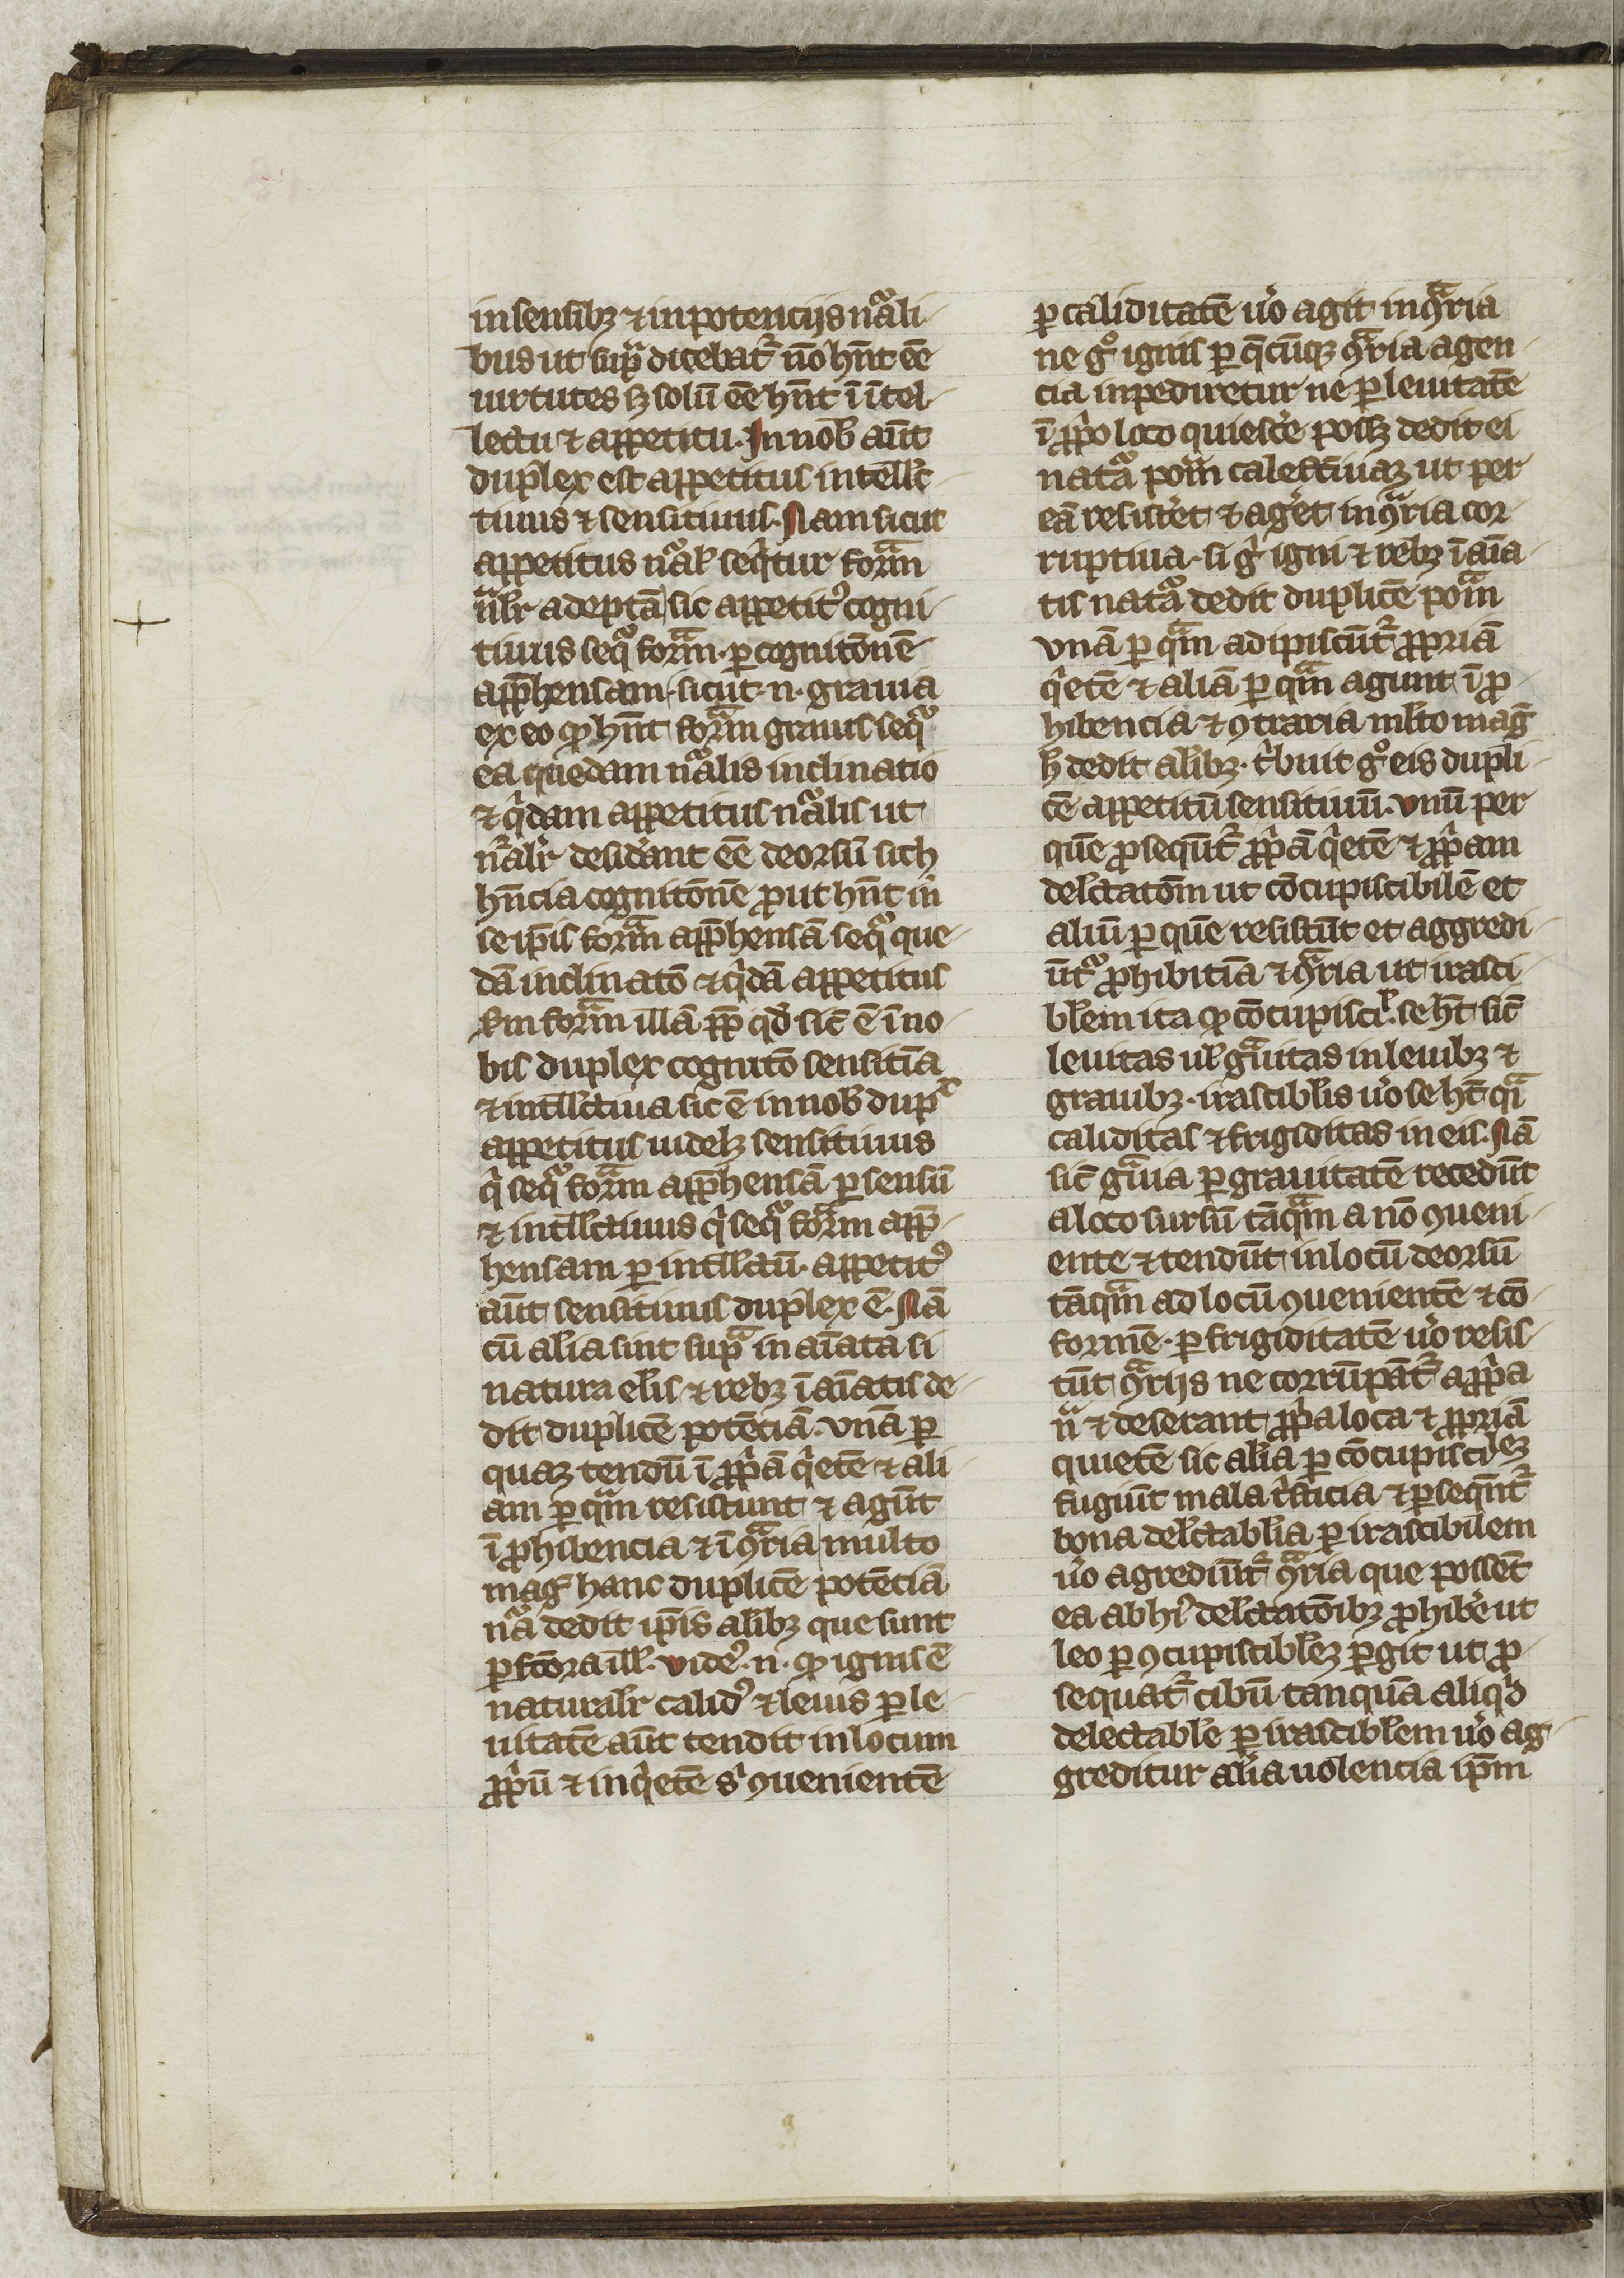 in sensibꝫ ⁊ in potencijs nᷓali
bus ut supᷓ dicebatᷣ nō hn̄t ēe
uirtutes sꝫ solū ēe hn̄t ī ītel
lectu ⁊ appetitu. In nob̄ aūt
duplex est appetitus intell̄c
tiuus ⁊ sensitiuus. Nam sicut
appetitus nᷓal̄ seqͥtur formᷓ
nᷓlr̄ adeptā sic appetitꝰ cogni
tiuus seqᷓ formᷓ. ꝑ cognitōnē
app̄hensam. sicut .n. grauia
ex eo ꝙ hn̄t formᷓ grauis seqᷓ
ea quedam nᷓalis inclinatio
⁊ qͥdam appetitus nᷓalis ut
nᷓalr̄ desiderant ēe deorsū sic h
hn̄cia cognitōnē ꝓut hn̄t in
se ip̄is formᷓ app̄hensā seqᷓ que
dā inclinatō ⁊ qͥdā appetitus
fm formᷓ illā ꝓp̄ qd̄ sic̄ ē ī no
bis duplex cognitō sensitīa
⁊ intll̄ctiua sic ē in nob̄ dupˣ
appetitus uidelꝫ sensitiuus
qͥ seqᷓ formᷓ app̄hensā ꝑ sensū
⁊ intll̄ctiuus qͥ seqᷓ formᷓ app̄
hensam ꝑ intll̄ctū. appetitꝰ
aūt sensitiuus duplex ē. Nā
cū alia sint supᷓ inaīata si
natura elīs ⁊ rebꝫ īaīatis de
dit duplicē potēciā. vnā ꝑ
quaꝫ tendū ī ꝓpͥā qͥetē ⁊ ali
am ꝑ qᷓm resistunt ⁊ agūt
ī ꝓhibencia ⁊ ī ꝯᷓria multo
maḡ hanc duplicē potēciā
nᷓa dedit ip̄is al̄ibꝫ que sunt
ꝑfc̄ōra ill̄. videꝰ .n. ꝙ ignis ē
naturalr̄ calidꝰ ⁊ leuis ꝑ le
uitatē aūt tendit in locum
ꝓpͥū ⁊ in qͥetē sͥ ꝯuenientē
ꝑ caliditatē uͦo agit in ꝯᷓria
ne gͦ ignis ꝑ qͣcūqꝫ ꝯᷓria agen
cia inpediretur ne ꝑ leuitatē
ī ꝓpͥo loco quiesce᷑ posꝫ dedit ei
natᷓa potᷓm calefc̄iuaꝫ ut per
eā resiste᷑t ⁊ age᷑t in ꝯᷓria cor
ruptiua. si gͦ igni ⁊ rebꝫ īaīa
tis natᷓa dedit duplicē potᷓm
vnā ꝑ qᷓm adipiscūtᷣ ꝓpriā
qͥetē ⁊ aliā ꝑ qᷓm agunt ī ꝓ
hibencia ⁊ ꝯtraria ml̄to maḡ
h̄ dedit al̄ibꝫ. tͥbuit gͦ eis dupli
cē appetitū sensitiuū. vnū per
quē ꝓsequn̄tᷣ ꝓpͥā qͥetē ⁊ ꝓpͥam
delc̄tatōm ut cōcupiscibilē et
aliū ꝑ quē resistūt et aggredi
ūtᷓ ꝓhibitīa ⁊ ꝯᷓria ut irasci
bl̄em ita ꝙ cōcupiscil̄. se h̄t sic̄
leuitas ul̄ gᷓuitas in leuibꝫ ⁊
grauibꝫ. irascibl̄is uͦo se h̄t qᷓi
caliditas ⁊ frigiditas in eis. Nā
sic̄ gᷓuia ꝑ grauitatē recedūt
a loco sursū tāqᷓm a nō ꝯueni
ente ⁊ tendūt in locū deorsū
tāqᷓm ad locū ꝯuenientē ⁊ cō
formē. ꝑ frigiditatē uͦo resis
tūt ꝯᷓrijs ne corrūpātᷣ a ꝓpͥa
nᷓ ⁊ deserant ꝓpͥa loca ⁊ ꝓpriā
quietē sic al̄ia ꝑ cōcupiscil̄eꝫ
fugiūt mala tͥsticia ⁊ ꝑseqn̄tᷣ
bona delc̄tabl̄ia ꝑ irascibilem
uͦo agrediūtᷣ ꝯᷓria que possēt
ea ab hiͥ delc̄tatōibꝫ ꝓhibe᷑ ut
leo ꝑ ꝯcupiscibl̄eꝫ ꝑgit ut ꝓ
sequatᷣ cibū tanquā aliqͥd
delectable ꝑ irascibl̄em uͦo ag
greditur al̄ia uolencia ip̄m